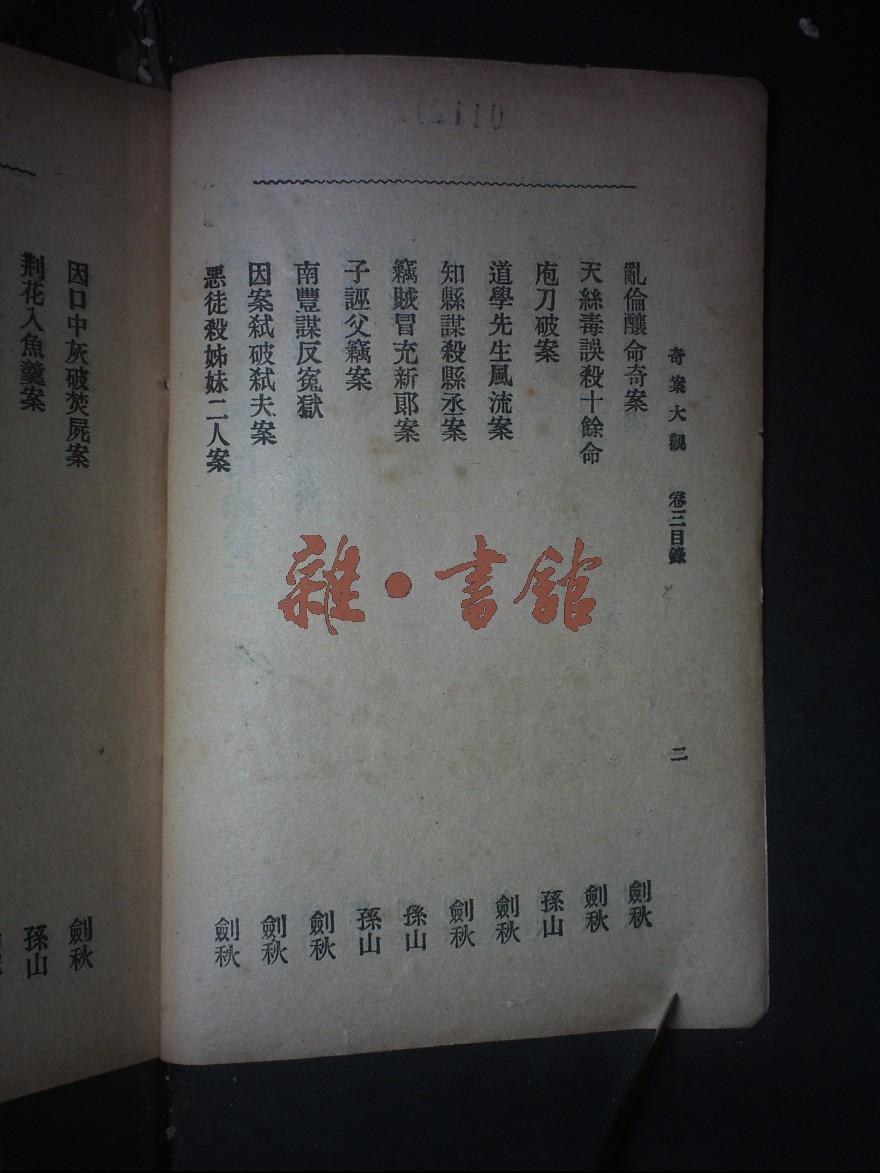 奇案大觀 卷三目錄 二
亂倫釀命奇案 劍秋
天絲毒誤殺十餘命 劍秋
庖刀破案 孫山
道學先生風流案 劍秋
知縣謀殺縣丞案 劍秋
竊賊冒充新郎案 孫山
子誣父竊案 孫山
南豐謀反寃獄 劍秋
因案弑破弑夫案 劍秋
惡徒殺姊妹二人案 劍秋
因口中灰破焚屍案 劍秋
荆花入魚羹案 孫山
雜·書館